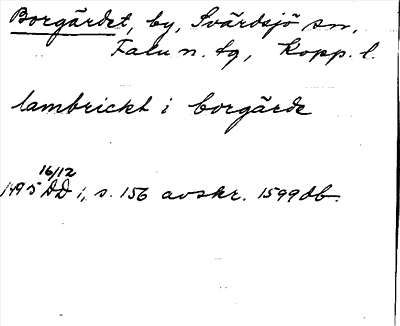 Borgärdet, by, Svärdsjö sn,
Falu n. tg, Kopp. l.
lambrickt i borgärde
16/12
1495 DD i, s. 156 avskr. 1599 db.